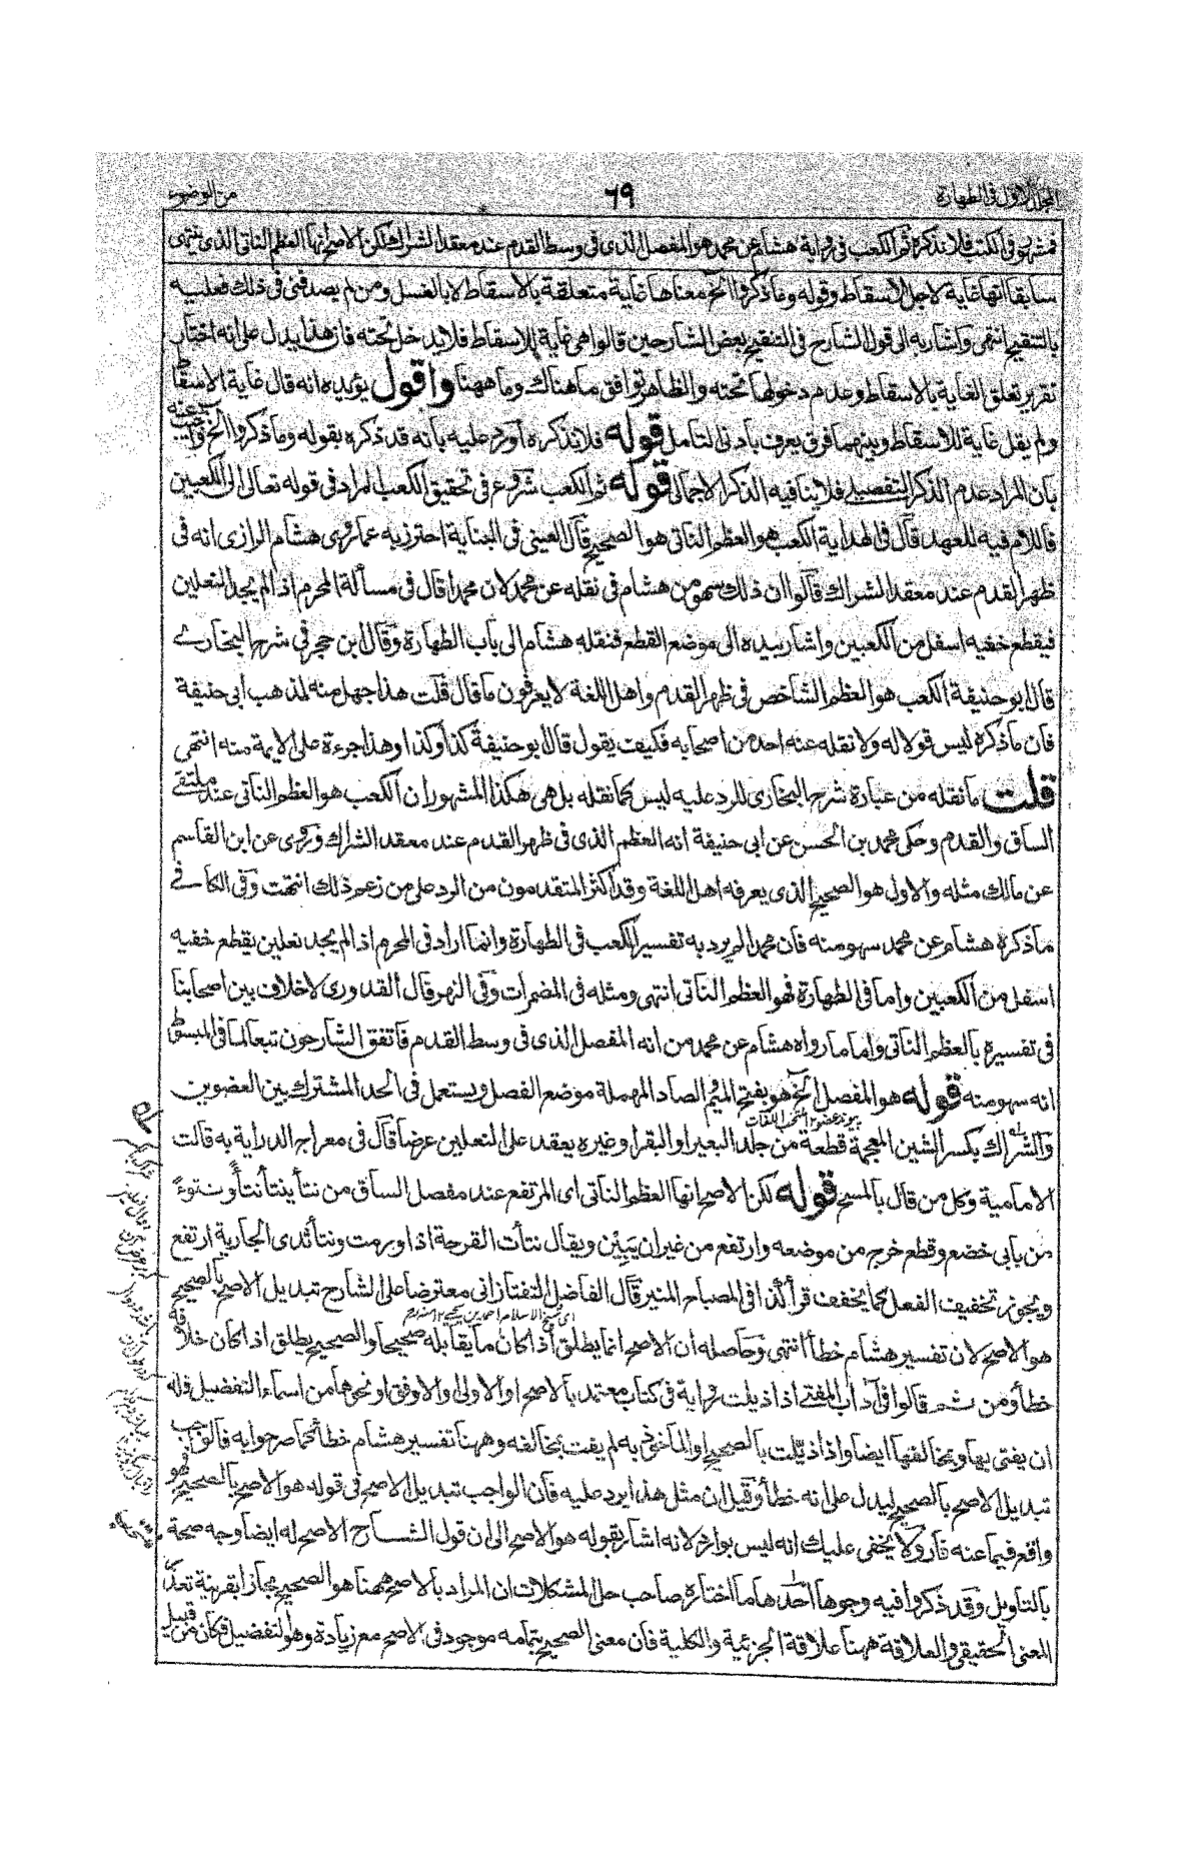 المجلد الاول فى الطهارة
٦٩
من الوضوء
فمشهور فى الكتب فلا نذكره ثم الكعب فى رواية هشام عن محمد هو المفصل الذى فى وسط القدم عند معقد الشراك لكن الاصح انها العظم الناتى الذى ينتهى
سابقا انها غاية لاجل الاسقاط وقوله وما ذكروا الخ معناها غاية متعلقة بالاسقاط لا بالغسل ومن لم يصدقنى فى ذلك فعليه
بالتنقيح انتهى واشار به الى قول الشارح فى التنقيح بعض الشارحين قالوا هى غاية للاسقاط فلا يدخل تحته فان هذا يدل على انه اختار
تقرير تعلق الغاية بالاسقاط وعدم دخولها تحته والظاهر توافق ما هناك وما ههنا واقول يؤيده انه قال غاية الاسقاط
ولم يقل غاية للاسقاط وبينهما فرق يعرف بادنى التامل قوله فلا نذكره اورد عليه بانه قد ذكره بقوله وما ذكروا الخ واجيب عنه
بان المراد عدم الذكر التفصيلى فلا ينافيه الذكر الاجمالى قوله ثم الكعب شروع فى تحقيق الكعب المراد فى قوله تعالى الى الكعبين
فاللام فيه للعهد قال فى الهداية الكعب هو العظم الناتى هو الصحيح قال العينى فى البناية احترز به عما روى هشام الرازى انه فى
ظهر القدم عند معقد الشراك قالوا ان ذلك سهو من هشام فى نقله عن محمد لان محمدا قال فى مسألة المحرم اذا لم يجد النعلين
فيقطع خفيه اسفل من الكعبين واشار بيده الى موضع القطع فنقله هشام الى باب الطهارة وقال ابن حجر فى شرح البخارى
قال ابو حنيفة الكعب هو العظم الشاخص فى ظهر القدم واهل اللغة لا يعرفون ما قال قلت هذا جهل منه لمذهب ابى حنيفة
فان ما ذكره ليس قولا له ولا نقله عنه احد من اصحابه فكيف يقول قال ابو حنيفة كذا وكذا وهذا جرءة على الايمة منه انتهى
قلت ما نقله من عبارة شرح البخارى للرد عليه ليس كما نقله بل هى هكذا المشهور ان الكعب هو العظم الناتى عند ملتقى
الساق والقدم وحكى محمد بن الحسن عن ابى حنيفة انه العظم الذى فى ظهر القدم عند معقد الشراك وروى عن ابن القاسم
عن مالك مثله والاول هو الصحيح الذى يعرفه اهل اللغة وقد اكثر المتقدمون من الرد على من زعم ذلك انتهت وفى الكافى
ما ذكره هشام عن محمد سهو منه فان محمدا لم يرد به تفسير الكعب فى الطهارة وانما اراد فى المحرم اذا لم يجد نعلين يقطع خفيه
اسفل من الكعبين واما فى الطهارة فهو العظم الناتى انتهى ومثله فى المضمرات وفى النهر قال القدورى لا خلاف بين اصحابنا
فى تفسيره بالعظم الناتى واما ما رواه هشام عن محمد من انه المفصل الذى فى وسط القدم فاتفق الشارحون تبعا لما فى المبسوط
انه سهو منه قوله هو المفصل الخ هو بفتح الميم الصاد المهملة موضع الفصل ويستعمل فى الحد المشترك بين العضوين
والشراك بكسر الشين المعجمة قطعة من جلد البعير او البقر او غيره يعقد على النعلين عرضا قال فى معراج الدراية به قالت
الامامية وكل من قال بالمسح قوله لكن الاصح انها العظم الناتى اى المرتفع عند مفصل الساق من نتأ ينتأ نتأ ونتوءً
من بابى خضع وقطع خرج من موضعه وارتفع من غير ان يبين ويقال نتأت القرحة اذا ورمت ونتأ ثدى الجارية ارتفع
ويجوز تخفيف الفعل كما يخفف قرأ كذا فى المصباح المنير قال الفاضل التفتازانى معترضا على الشارح تبديل الاصح بالصحيح
هو الاصح لان تفسير هشام خطأ انتهى وحاصله ان الاصح انما يطلق اذا كان ما يقابله صحيحا والصحيح يطلق اذا كان خلافه
خطأ ومن ثمه قالوا فى آداب المفتى اذا ذيلت رواية فى كتاب معتمد بالاصح او الاولى والاوفق او نحوها من اسماء التفضيل فله
ان يفتى بها وبمخالفها ايضا واذا ذيلت بالصحيح او الماخوذ به لم يفت بمخالفه وههنا تفسير هشام خطأ كما صرحوا به فالواجب
تبديل الاصح بالصحيح ليدل على انه خطأ وقيل ان مثل هذا يرد عليه فان الواجب تبديل الاصح فى قوله هو الاصح بالصحيح فهو
واقع فيما عنه فار ولا يخفى عليك انه ليس بوارد لانه اشار بقوله هو الاصح الى ان قول الشارح الاصح له ايضا وجه صحة
بالتاويل وقد ذكروا فيه وجوها احدها ما اختاره صاحب حل المشكلات ان المراد بالاصح ههنا هو الصحيح مجازا بقرينة تعذر
المعنى الحقيقى والعلاقة ههنا علاقة الجزئية والكلية فان معنى الصحيح بتمامه موجود فى الاصح مع زيادة وهو التفضيل فكان من قبيل